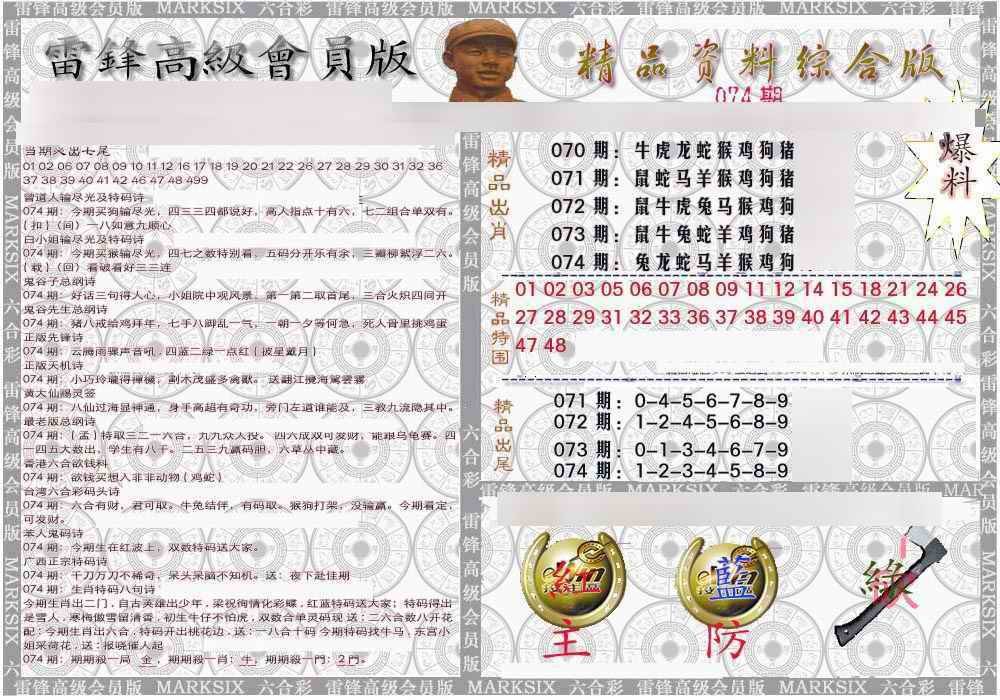 雷锋高级会员版 MARKSIX 六合彩 雷锋高级会员版 MARKSIX 六合彩 雷锋高级会员版 MARKSIX 六合彩 雷锋
雷鋒高級會員版
精品资料综合版
074期
爆料
当期火出七尾
01 02 06 07 08 09 10 11 12 16 17 18 19 20 21 22 26 27 28 29 30 31 32 36
37 38 39 40 41 42 46 47 48 499
曾道人输尽光及特码诗
074期：今期买狗输尽光，四三三四都说好，高人指点十有六，七二组合单双有。
{扣}（间）一八如意九顺心
白小姐输尽光及特码诗
074期：今期买猴输尽光，四七之数特别看，五码分开乐有余，三瓣柳絮浮二六。
{载}（回）看破看好三三连
鬼谷子总纲诗
074期：好话三句得人心，小姐院中观风景，第一第二取首尾，三合火炽四同开
鬼谷先生总纲诗
074期：猪八戒给鸡拜年，七手八脚乱一气，一朝一夕等何急，死人骨里挑鸡蛋
正版先锋诗
074期：云腾雨骤声音吼，四蓝二绿一点红{披星戴月}
正版天机诗
074期：小巧玲珑得禅機，割木茂盛多禽獸。送翻江攪海駕雲霧
黄大仙赐灵签
074期：八仙过海显神通，身手高超有奇功，旁门左道谁能及，三教九流隐其中。
最老版总纲诗
074期：{孟}特取三二一六合，九九众人投。四六成双可发财，能跟乌龟赛。四
一四五大数出，学生有八千。二五三九赢码胆，六草丛中藏。
香港六合欲钱料
074期：欲钱买想入非非动物{鸡蛇}
台湾六合彩码头诗
074期：六合有财，君可取。牛兔结伴，有码取。猴狗打架，没输赢。今期看定，
可发财。
苯人鬼码诗
074期：今期生在红波上，双数特码送大家。
广西正宗特码诗
074期：千刀万刀不稀奇，呆头呆脑不知机。送：夜下赴佳期
074期：生肖特码八句诗
今期生肖出二门，自古英雄出少年，梁祝徇情化彩蝶，红蓝特码送大家；特码得出
是雪人，寒梅傲雪留清香，初生牛仔不怕虎，双数合单灵码现 送：二六合数八开花
配：今期生肖出六合，特码开出桃花边，送：一八合十码 今期特码找牛马，东宫小
姐采荷花，送：报晓催人起
074期：期期殺一局 金，期期殺一肖：牛，期期殺一門：2門。
精品出肖
070 期：牛虎龙蛇猴鸡狗猪
071 期：鼠蛇马羊猴鸡狗猪
072 期：鼠牛虎兔马猴鸡狗
073 期：鼠牛兔蛇羊鸡狗猪
074 期：兔龙蛇马羊猴鸡狗
精品特围
01 02 03 05 06 07 08 09 11 12 14 15 18 21 24 26
27 28 29 31 32 33 36 37 38 39 40 41 42 43 44 45
47 48
精品出尾
071 期：0-4-5-6-7-8-9
072 期：1-2-4-5-6-8-9
073 期：0-1-3-4-6-7-9
074 期：1-2-3-4-5-8-9
紅
主
藍
防
綠
雷锋高级会员版 MARKSIX 六合彩 雷锋高级会员版 MARKSIX 六合彩 雷锋高级会员版 MARKSIX 六合彩 雷锋